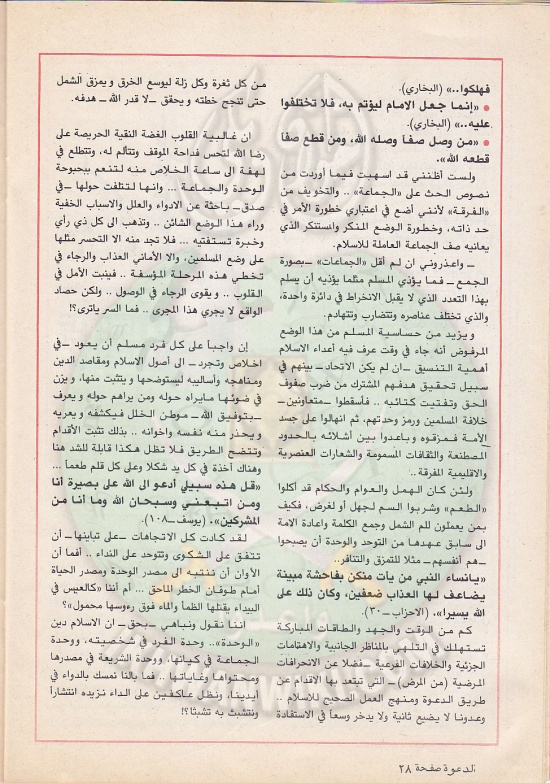 فهلكوا..» (البخاري).
● «إنما جعل الامام ليؤتم به، فلا تختلفوا
عليه..» (البخاري).
● «من وصل صفاً وصله الله، ومن قطع صفاً
قطعه الله».
ولست أظنني قد اسهبت فيما أوردت من
نصوص الحث على «الجماعة» .. والتخويف من
«الفرقة» لأنني أضع في اعتباري خطورة الأمر في
حد ذاته، وخطورة الوضع المنكر والمستنكر الذي
يعانيه صف الجماعة العاملة للاسلام.
ــ واعذروني ان لم أقل «الجماعات» ــ بصورة
الجمع ــ فما يؤذي المسلم مثلما يؤذيه أن يسلم
بهذا التعدد الذي لا يقبل الانخراط في دائرة واحدة،
والذي تختلف عناصره وتتضارب وتتهادم.
و يزيد من حساسية المسلم من هذا الوضع
المرفوض أنه جاء في وقت عرف فيه أعداء الاسلام
أهمية التنسيق ــ ان لم يكن الاتحاد ــ بينهم في
سبيل تحقيق هدفهم المشترك من ضرب صفوف
الحق وتفتيت كتائبه .. فأسقطوا ــ متعاونين ــ
خلافة المسلمين ورمز وحدتهم، ثم انهالوا على جسد
الأمة فمزقوه و باعدوا بين أشلائه بالحدود
المصطنعة والثقافات المسمومة والشعارات العنصرية
والاقليمية المفرقة ..
ولئن كان الهمل والعوام والحكام قد أكلوا
«الطعم» وشربوا السم لجهل أو لغرض، فكيف
بمن يعملون للم الشمل وجمع الكلمة واعادة الامة
الى سابق عهدها من التوحد والوحدة أن يصبحوا
ــ هم أنفسهم ــ مثلا للتمزق والتنافر..
«يانساء النبي من يأت منكن بفاحشة مبينة
يضاعف لها العذاب ضعفين، وكان ذلك على
الله يسيرا»، (الاحزاب ــ ٣٠).
كم من الوقت والجهد والطاقات المباركة
تستهلك في التلهي بالمناظر الجانبية والاهتمامات
الجزئية والخلافات الفرعية ــ فضلا عن الانحرافات
المرضية (من المرض) ــ التي تبتعد بها الاقدام عن
طريق الدعوة ومنهج العمل الصحيح للاسلام ..
وعدونا لا يضيع ثانية ولا يدخر وسعاً في الاستفادة
من كل ثغرة وكل زلة ليوسع الخرق و يمزق الشمل
حتى تنجح خطته و يحقق ــ لا قدر الله ــ هدفه.
ان غالبية القلوب الغضة النقية الحريصة على
رضا الله لتحس فداحة الموقف وتتألم له، وتتطلع في
لهفة الى ساعة الخلاص منه لتنعم ببحبوحة
الوحدة والجماعة ... وانها لتتلفت حولها ــ في
صدق ــ باحثة عن الادواء والعلل والاسباب الخفية
وراء هذا الوضع الشائن .. وتذهب الى كل ذي رأي
وخبرة تستفتيه ... فلا تجد منه الا التحسر مثلها
على وضع المسلمين، والا الأماني العذاب والرجاء في
تخطي هذه المرحلة المؤسفة .. فينبت الأمل في
القلوب .. و يقوى الرجاء في الوصول .. ولكن حصاد
الواقع لا يجري هذا المجرى .. فما السر ياترى؟!
إن واجباً على كل فرد مسلم أن يعود ــ في
اخلاص وتجرد ــ الى أصول الاسلام ومقاصد الدين
ومناهجه وأساليبه ليستوضحها و يتثبت منها، و يزن
في ضوئها مايراه حوله ومن يراهم حوله و يعرف
ــ بتوفيق الله ــ موطن الخلل فيكشفه و يعريه
و يحذر منه نفسه واخوانه .. بذلك تثبت الأقدام
وتتضح الطريق فلا تظل هكذا قابلة للشد هنا
وهناك آخذة في كل يد شكلا وعلى كل قلم طعماً ...
«قل هذه سبيلي أدعو الى الله على بصيرة أنا
ومن اتبعني وسبحان الله وما أنا من
المشركين»، (يوسف ــ ١٠٨).
لقد كادت كل الاتجاهات ــ على تباينها ــ أن
تتفق على الشكوى وتتوحد على النداء .. أفما آن
الأوان أن ننتبه الى مصدر الوحدة ومصدر الحياة
أمام طوفان الخطر الماحق ... أم أننا «كالعيس في
البيداء يقتلها الظمأ والماء فوق رءوسها محمول»؟
اننا نقول ونباهي ــ بحق ــ ان الاسلام دين
«الوحدة».. وحدة الفرد في شخصيته، ووحدة
الجماعة في كيانها، ووحدة الشريعة في مصدرها
ومحتواها وغاياتها .. فما بالنا نمسك بالدواء في
أيدينا، ونظل عاكفين على الداء نزيده انتشاراً
ونتشبث به تشبثا؟!
الدعوة صفحة ٢٨